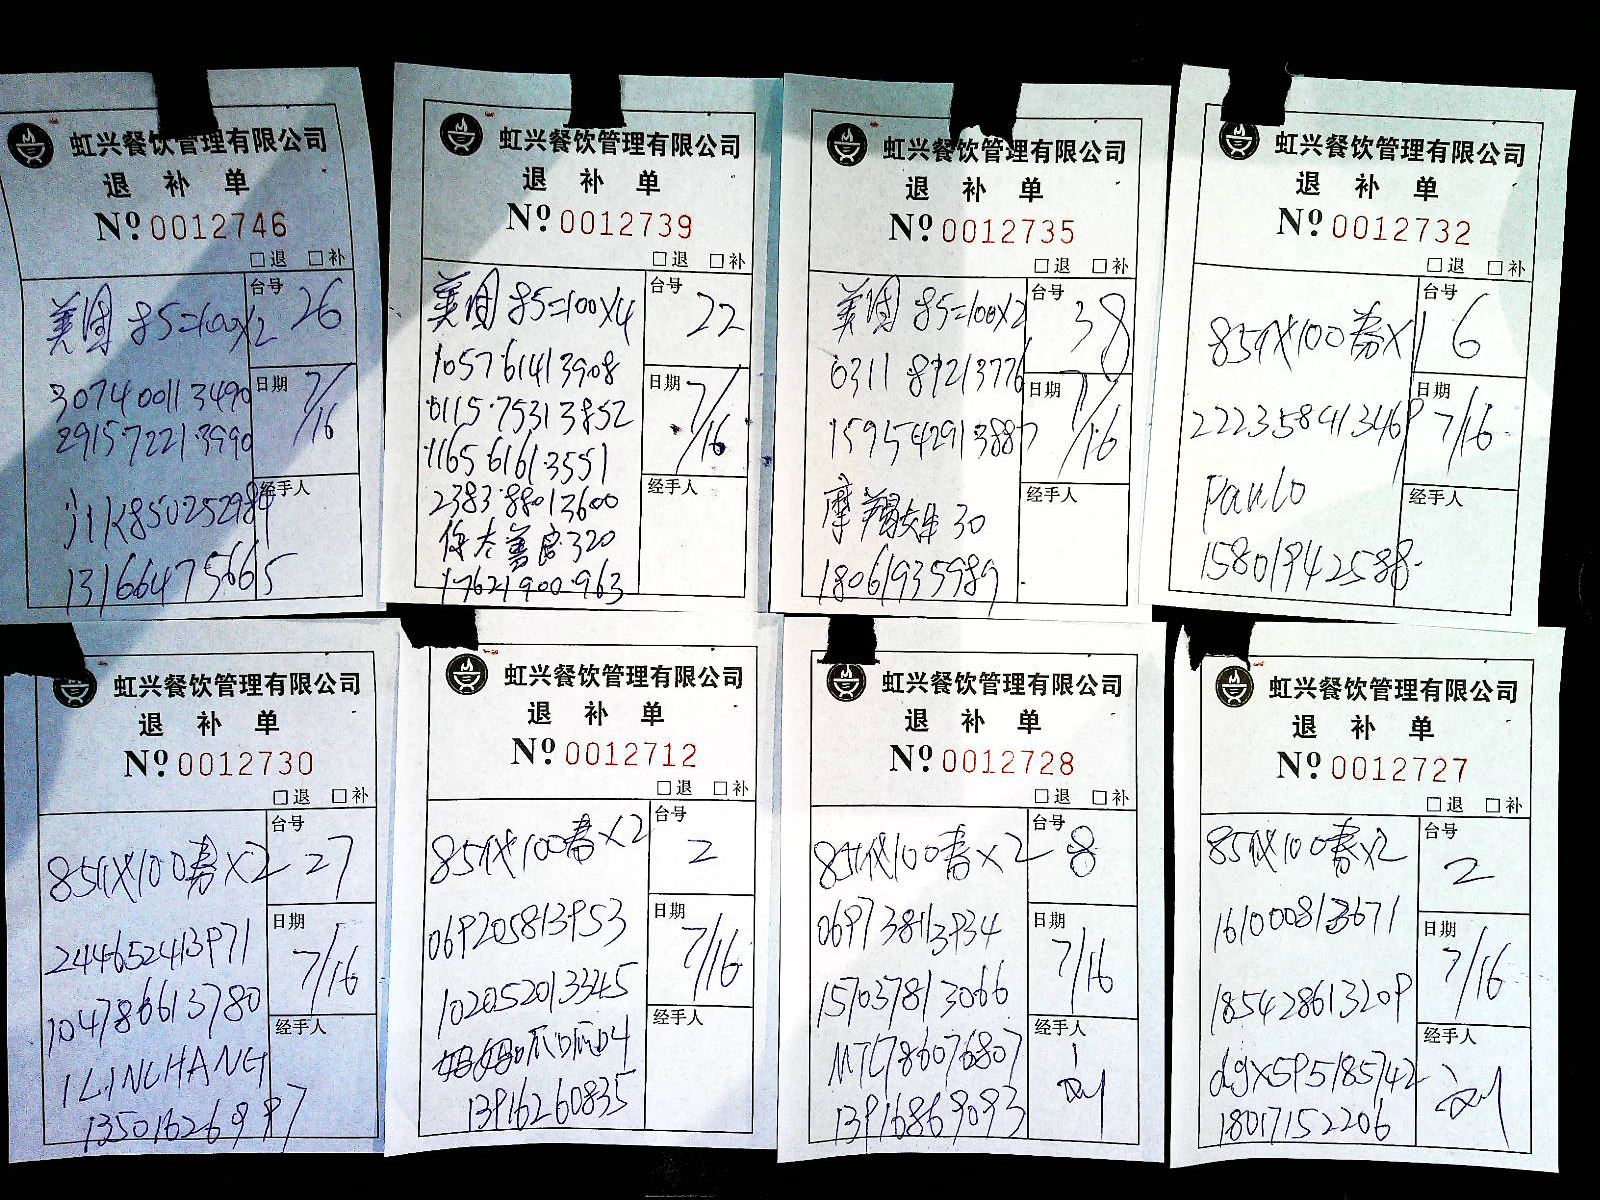 虹兴餐饮管理有限公司
退 补 单
Nº 0012746
□退 □补
美团 85=100X2
台号
26
307400113490
日期
7/16
291572213990
经手人
jlk850252984
13166475665
虹兴餐饮管理有限公司
退 补 单
Nº 0012739
□退 □补
美团 85=100X4
台号
22
105761413908
日期
7/16
0115.75313852
11656161.3551
经手人
2383.88013600
320
17621900.963
虹兴餐饮管理有限公司
退 补 单
Nº 0012735
□退 □补
美团 85=100X2
台号
38
0311 87213776
日期
7/16
159542913887
经手人
摩羯女生30
18061935989
虹兴餐饮管理有限公司
退 补 单
Nº 0012732
□退 □补
85代100券X1
台号
6
222358413469
日期
7/16
经手人
Panlo
15801942588
虹兴餐饮管理有限公司
退 补 单
Nº 0012730
□退 □补
85代100券X2
台号
27
244652413971
日期
7/16
104786613780
经手人
ILINCHANG
13501626997
虹兴餐饮管理有限公司
退 补 单
Nº 0012712
□退 □补
85代100券X2
台号
2
069205813953
日期
7/16
102052013345
经手人
13916260835
虹兴餐饮管理有限公司
退 补 单
Nº 0012728
□退 □补
85代100券X2
台号
8
069738113934
日期
7/16
157037813066
经手人
刘
MTL786076807
13916869093
虹兴餐饮管理有限公司
退 补 单
Nº 0012727
□退 □补
85代100券X2
台号
2
161000813671
日期
7/16
185428613209
经手人
刘
dgx595185742
18017152206